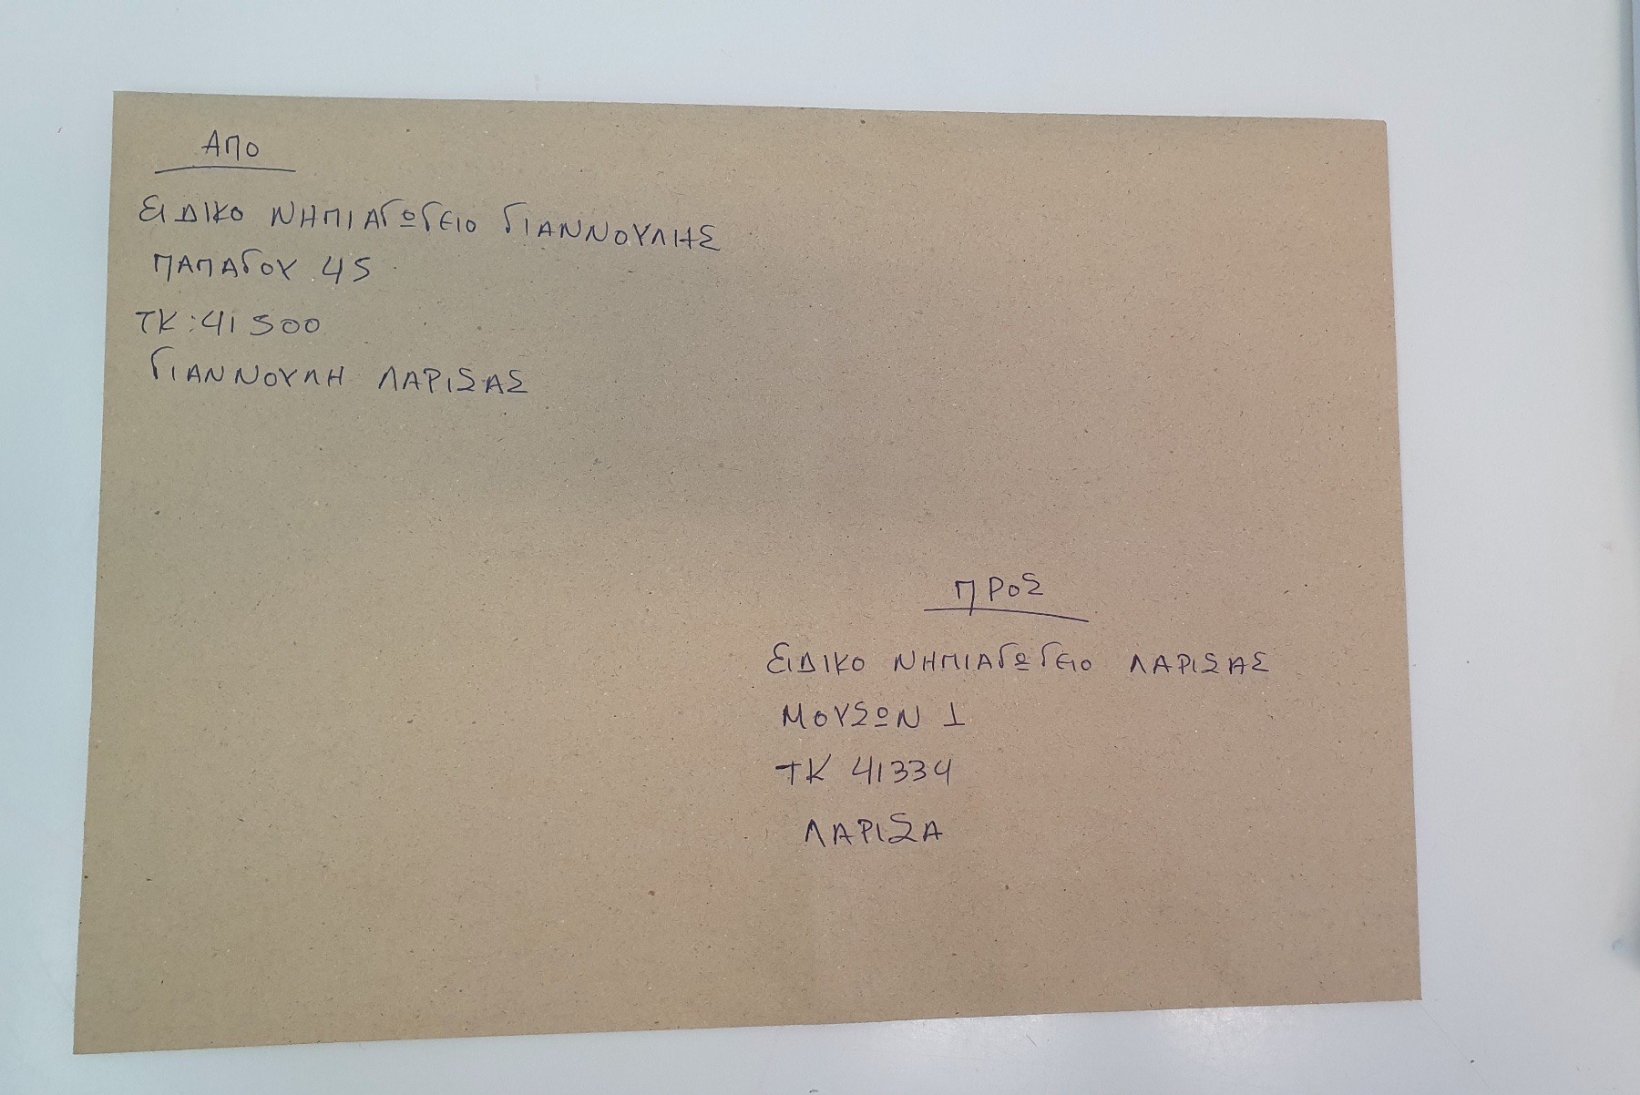 ΑΠΟ
ΕΙΔΙΚΟ ΝΗΠΙΑΓΩΓΕΙΟ ΓΙΑΝΝΟΥΛΗΣ
ΠΑΠΑΓΟΥ 45
ΤΚ: 41500
ΓΙΑΝΝΟΥΛΗ ΛΑΡΙΣΑΣ
ΠΡΟΣ
ΕΙΔΙΚΟ ΝΗΠΙΑΓΩΓΕΙΟ ΛΑΡΙΣΑΣ
ΜΟΥΣΩΝ 1
ΤΚ 41334
ΛΑΡΙΣΑ